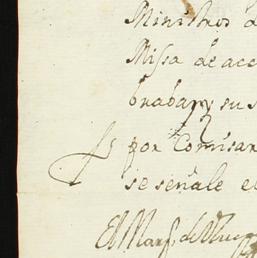 Ministros d
Missa de acc
brada y su s
por Comisar
se señale e
El Marq. de